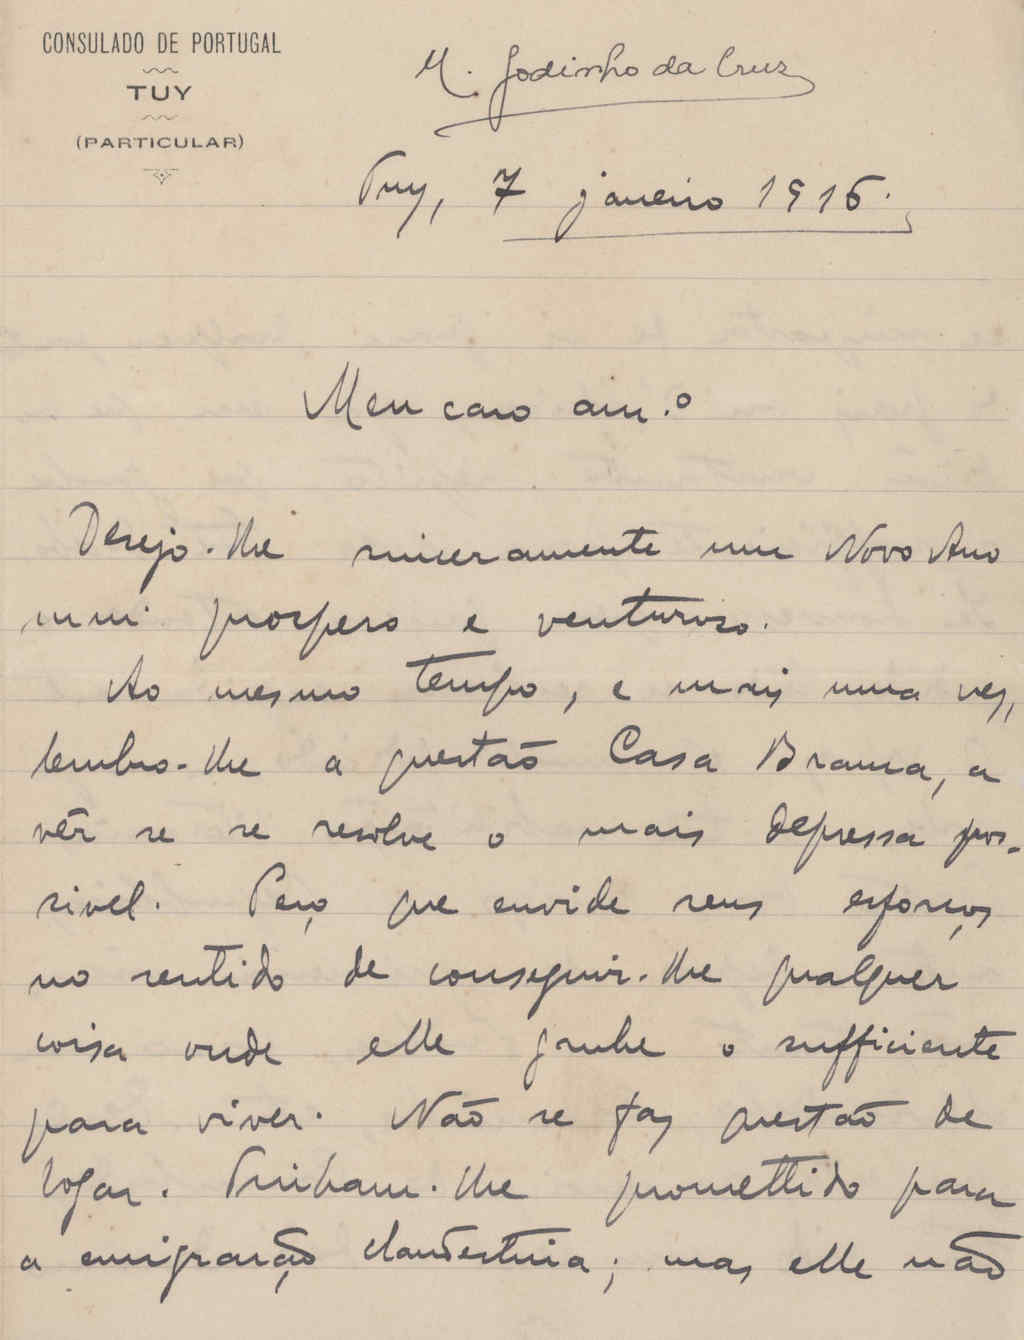 CONSULADO DE PORTUGAL
TUY
(PARTICULAR)
M. Godinho da Cruz
Tuy, 7 janeiro 1916.
Meu caro am.º
Desejo-lhe sinceramente um Novo Ano
mui prospero e venturoso.
Ao mesmo tempo, e mais uma vez,
lembro-lhe a questão Casa Branca, a
vêr se se resolve o mais depressa pos-
sivel. Peço que envide seus esforços
no sentido de conseguir-lhe qualquer
coisa onde elle ganhe o sufficiente
para viver. Não se faz questão de
logar. Tinham-lhe promettido para
a emigração clandestina; mas elle não